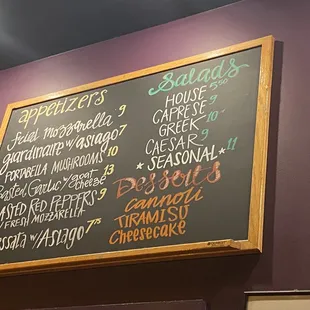 appetizers
fried Mozzarella 9
giardinaire w/asiago 7
PORTABELLA MUSHROOMS 10
Roasted Garlic w/goat cheese 13
ROASTED RED PEPPERS 9
w/ FRESH MOZZARELLA
w/Asiago 7.75
Salads
HOUSE $5.50
CAPRESE 9
GREEK 10-
CAESAR 9
*SEASONAL* 11
Desserts
cannoli
TIRAMISU
Cheesecake